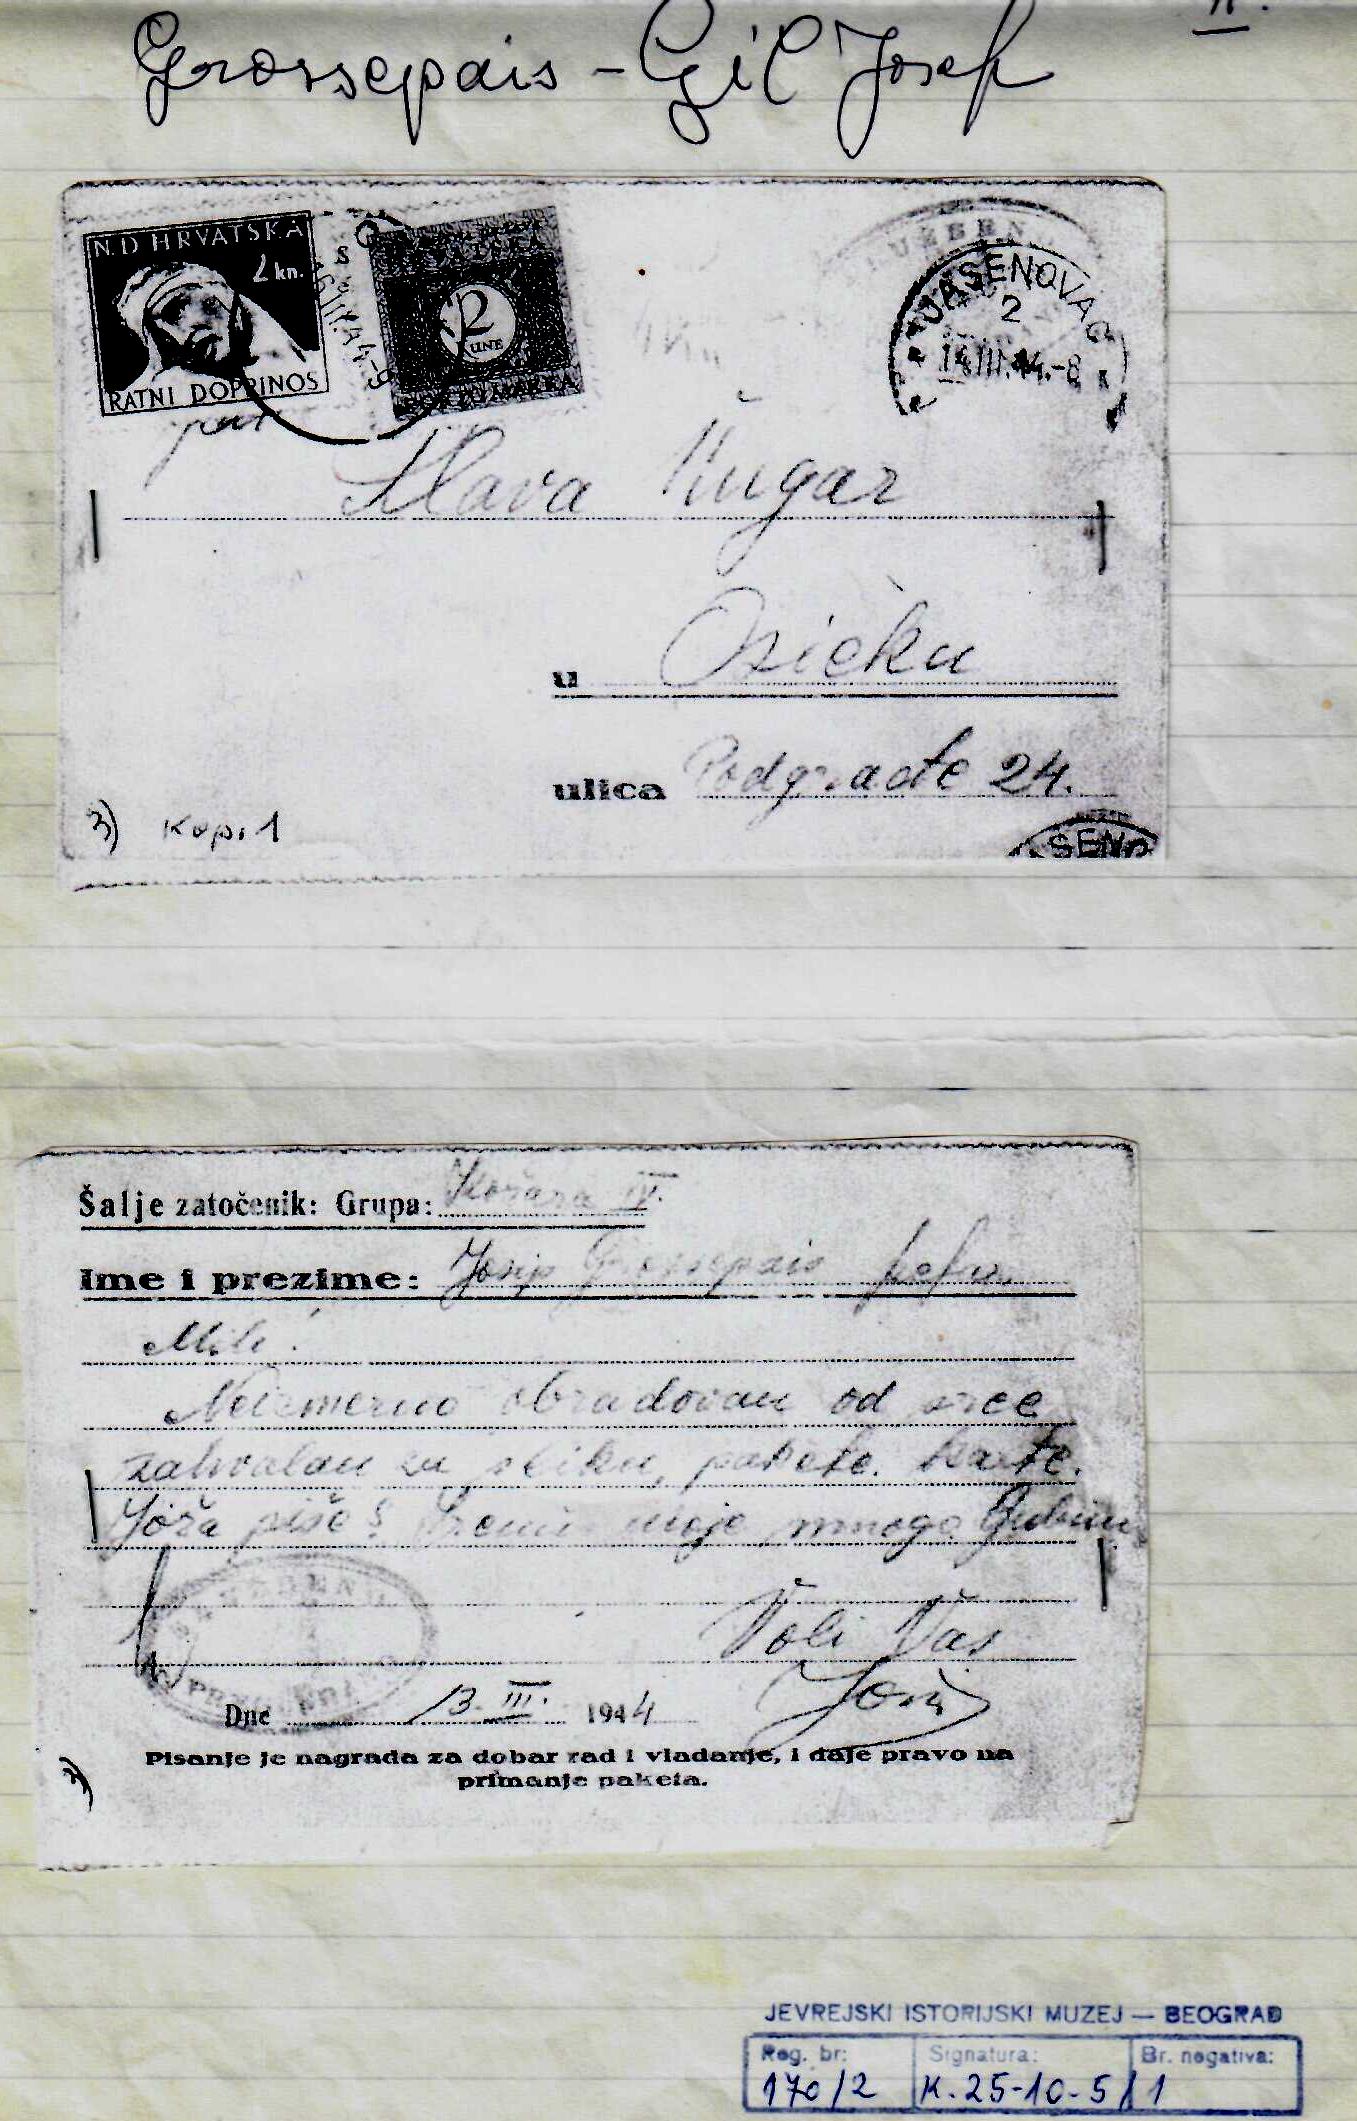 II.
Grossepais - Gil Josef
N.D HRVATSKA
2 kn.
RATNI DOPRINOS
HRVATSKA
2
KUNE
PORTO MARKA
JASENOVAC
2
14.III.44.-8
Slava Ungar
u Osieku
ulica Podgrađe 24.
3) Kop. 1
Šalje zatočenik: Grupa: Kožara IV.
Ime i prezime: Josip Grossepais
Mili!
Neizmerno obradovan od srce
zahvalan za sliku, pakete. karte.
Joža piše? moje mnogo ljubim
Voli Vas
Dne 13. III. 1944
Pisanje je nagrada za dobar rad i vladanje, i daje pravo na
primanje paketa.
3)
JEVREJSKI ISTORIJSKI MUZEJ — BEOGRAD
Reg. br: Signatura: Br. negativa:
170/2 K. 25-10-5/1